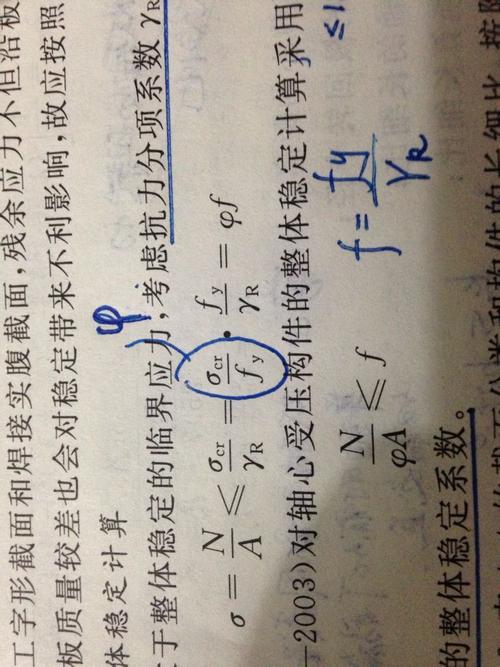 工字形截面和焊接实腹截面,残余应力不但沿板
板质量较差也会对稳定带来不利影响,故应按照
体稳定计算
φ
于整体稳定的临界应力,考虑抗力分项系数 γR
σ = N/A ≤ σcr/γR = σcr/fy · fy/γR = φf
—2003)对轴心受压构件的整体稳定计算采用
≤1
f = fy/γR
N/φA ≤ f
的整体稳定系数。
分类和构件的长细比,按